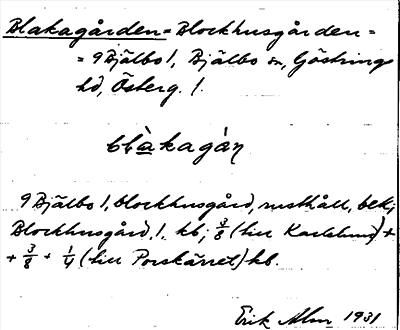 Blakagården = Blockhusgården =
= 9 Bjälbo 1, Bjälbo sn, Göstrings
hd, Österg. l.
blàkagán
9 Bjälbo 1, blockhusgård, rusthåll, bek;
Blockhusgård, 1. kb; 3/8 (till Karlslund) +
+ 3/8 + 1/4 (till Porskärret) kb.
Erik Alm 1931